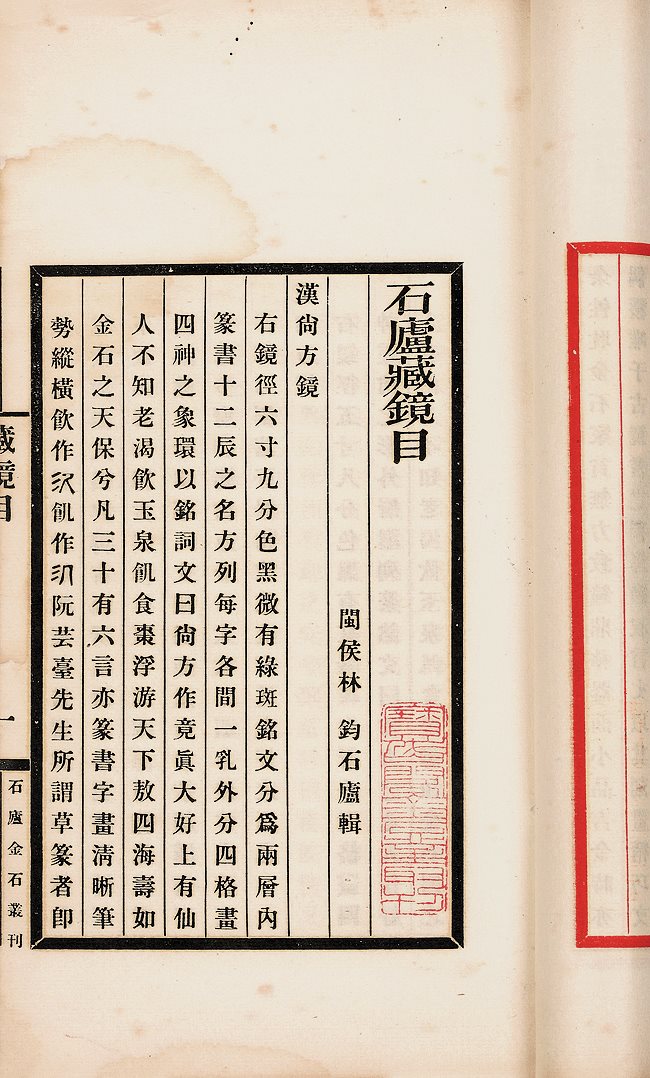 石廬藏鏡目
閩侯林 鈞石廬輯
漢尙方鏡
右鏡徑六寸九分色黑微有綠斑銘文分爲兩層內
篆書十二辰之名方列每字各間一乳外分四格畫
四神之象環以銘詞文曰尙方作竟眞大好上有仙
人不知老渴飮玉泉飢食棗浮游天下敖四海壽如
金石之天保兮凡三十有六言亦篆書字畫淸晰筆
勢縱橫飮作㳄飢作汎阮芸臺先生所謂草篆者卽
藏鏡目
一
石廬金石叢刊